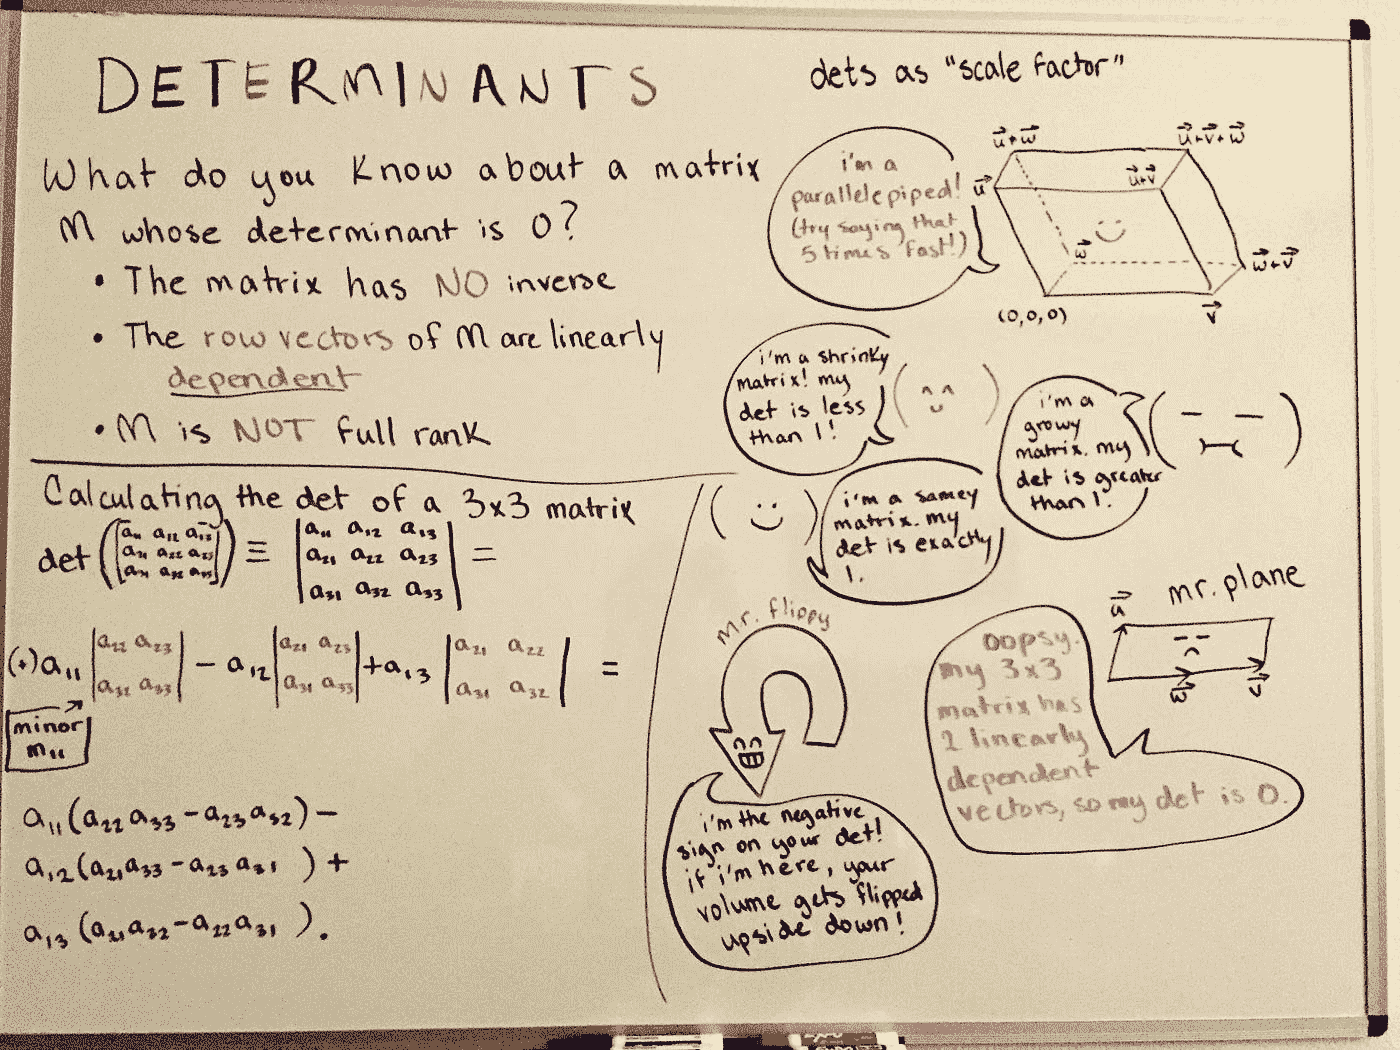 DETERMINANTS
What do you know about a matrix
M whose determinant is 0?
• The matrix has NO inverse
• The row vectors of M are linearly
dependent
• M is NOT full rank
Calculating the det of a 3x3 matrix
det ([a₁₁ a₁₂ a₁₃
a₂₁ a₂₂ a₂₃
a₃₁ a₃₂ a₃₃]) ≡ |a₁₁ a₁₂ a₁₃
a₂₁ a₂₂ a₂₃
a₃₁ a₃₂ a₃₃| =
(+)a₁₁ |a₂₂ a₂₃
a₃₂ a₃₃| - a₁₂ |a₂₁ a₂₃
a₃₁ a₃₃| + a₁₃ |a₂₁ a₂₂
a₃₁ a₃₂| =
minor
m₁₁
a₁₁(a₂₂a₃₃ - a₂₃a₃₂) -
a₁₂(a₂₁a₃₃ - a₂₃a₃₁ ) +
a₁₃(a₂₁a₃₂ - a₂₂a₃₁ ).
dets as "scale factor"
i'm a
parallelepiped!
(try saying that
5 times fast!)
u⃗+w⃗
u⃗+v⃗+w⃗
u⃗
u⃗+v⃗
w⃗
w⃗+v⃗
(0,0,0)
v⃗
i'm a shrinky
matrix! my
det is less
than 1!
i'm a
growy
matrix. my
det is greater
than 1.
i'm a samey
matrix. my
det is exactly
1.
mr. flippy
i'm the negative
sign on your det!
if i'm here, your
volume gets flipped
upside down!
mr. plane
u⃗
w⃗
v⃗
oopsy.
my 3x3
matrix has
2 linearly
dependent
vectors, so my det is 0.